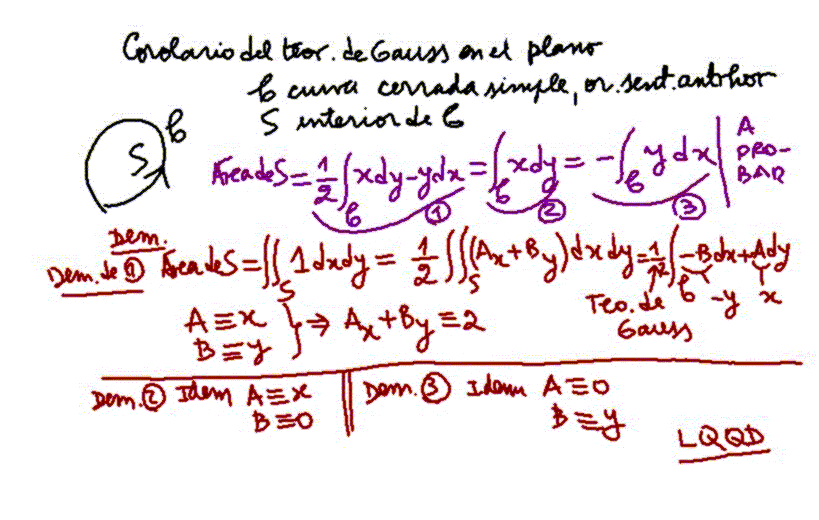 Corolario del teor. de Gauss en el plano
C curva cerrada simple, or. sent. antihor
S interior de C
S C
Área de S = 1/2 ∫_C xdy - ydx = ∫_C xdy = -∫_C y dx | A PRO-BAR
① ② ③
Dem.
Dem. de ① Área de S = ∬_S 1 dxdy = 1/2 ∬_S (A_x + B_y) dx dy = 1/2 ∫_C -B dx + A dy
-y x
↑ Teo. de Gauss
A ≡ x
B ≡ y } ⇒ A_x + B_y ≡ 2
Dem. ② Idem A ≡ x
B ≡ 0
Dem. ③ Idem A ≡ 0
B ≡ y
LQQD